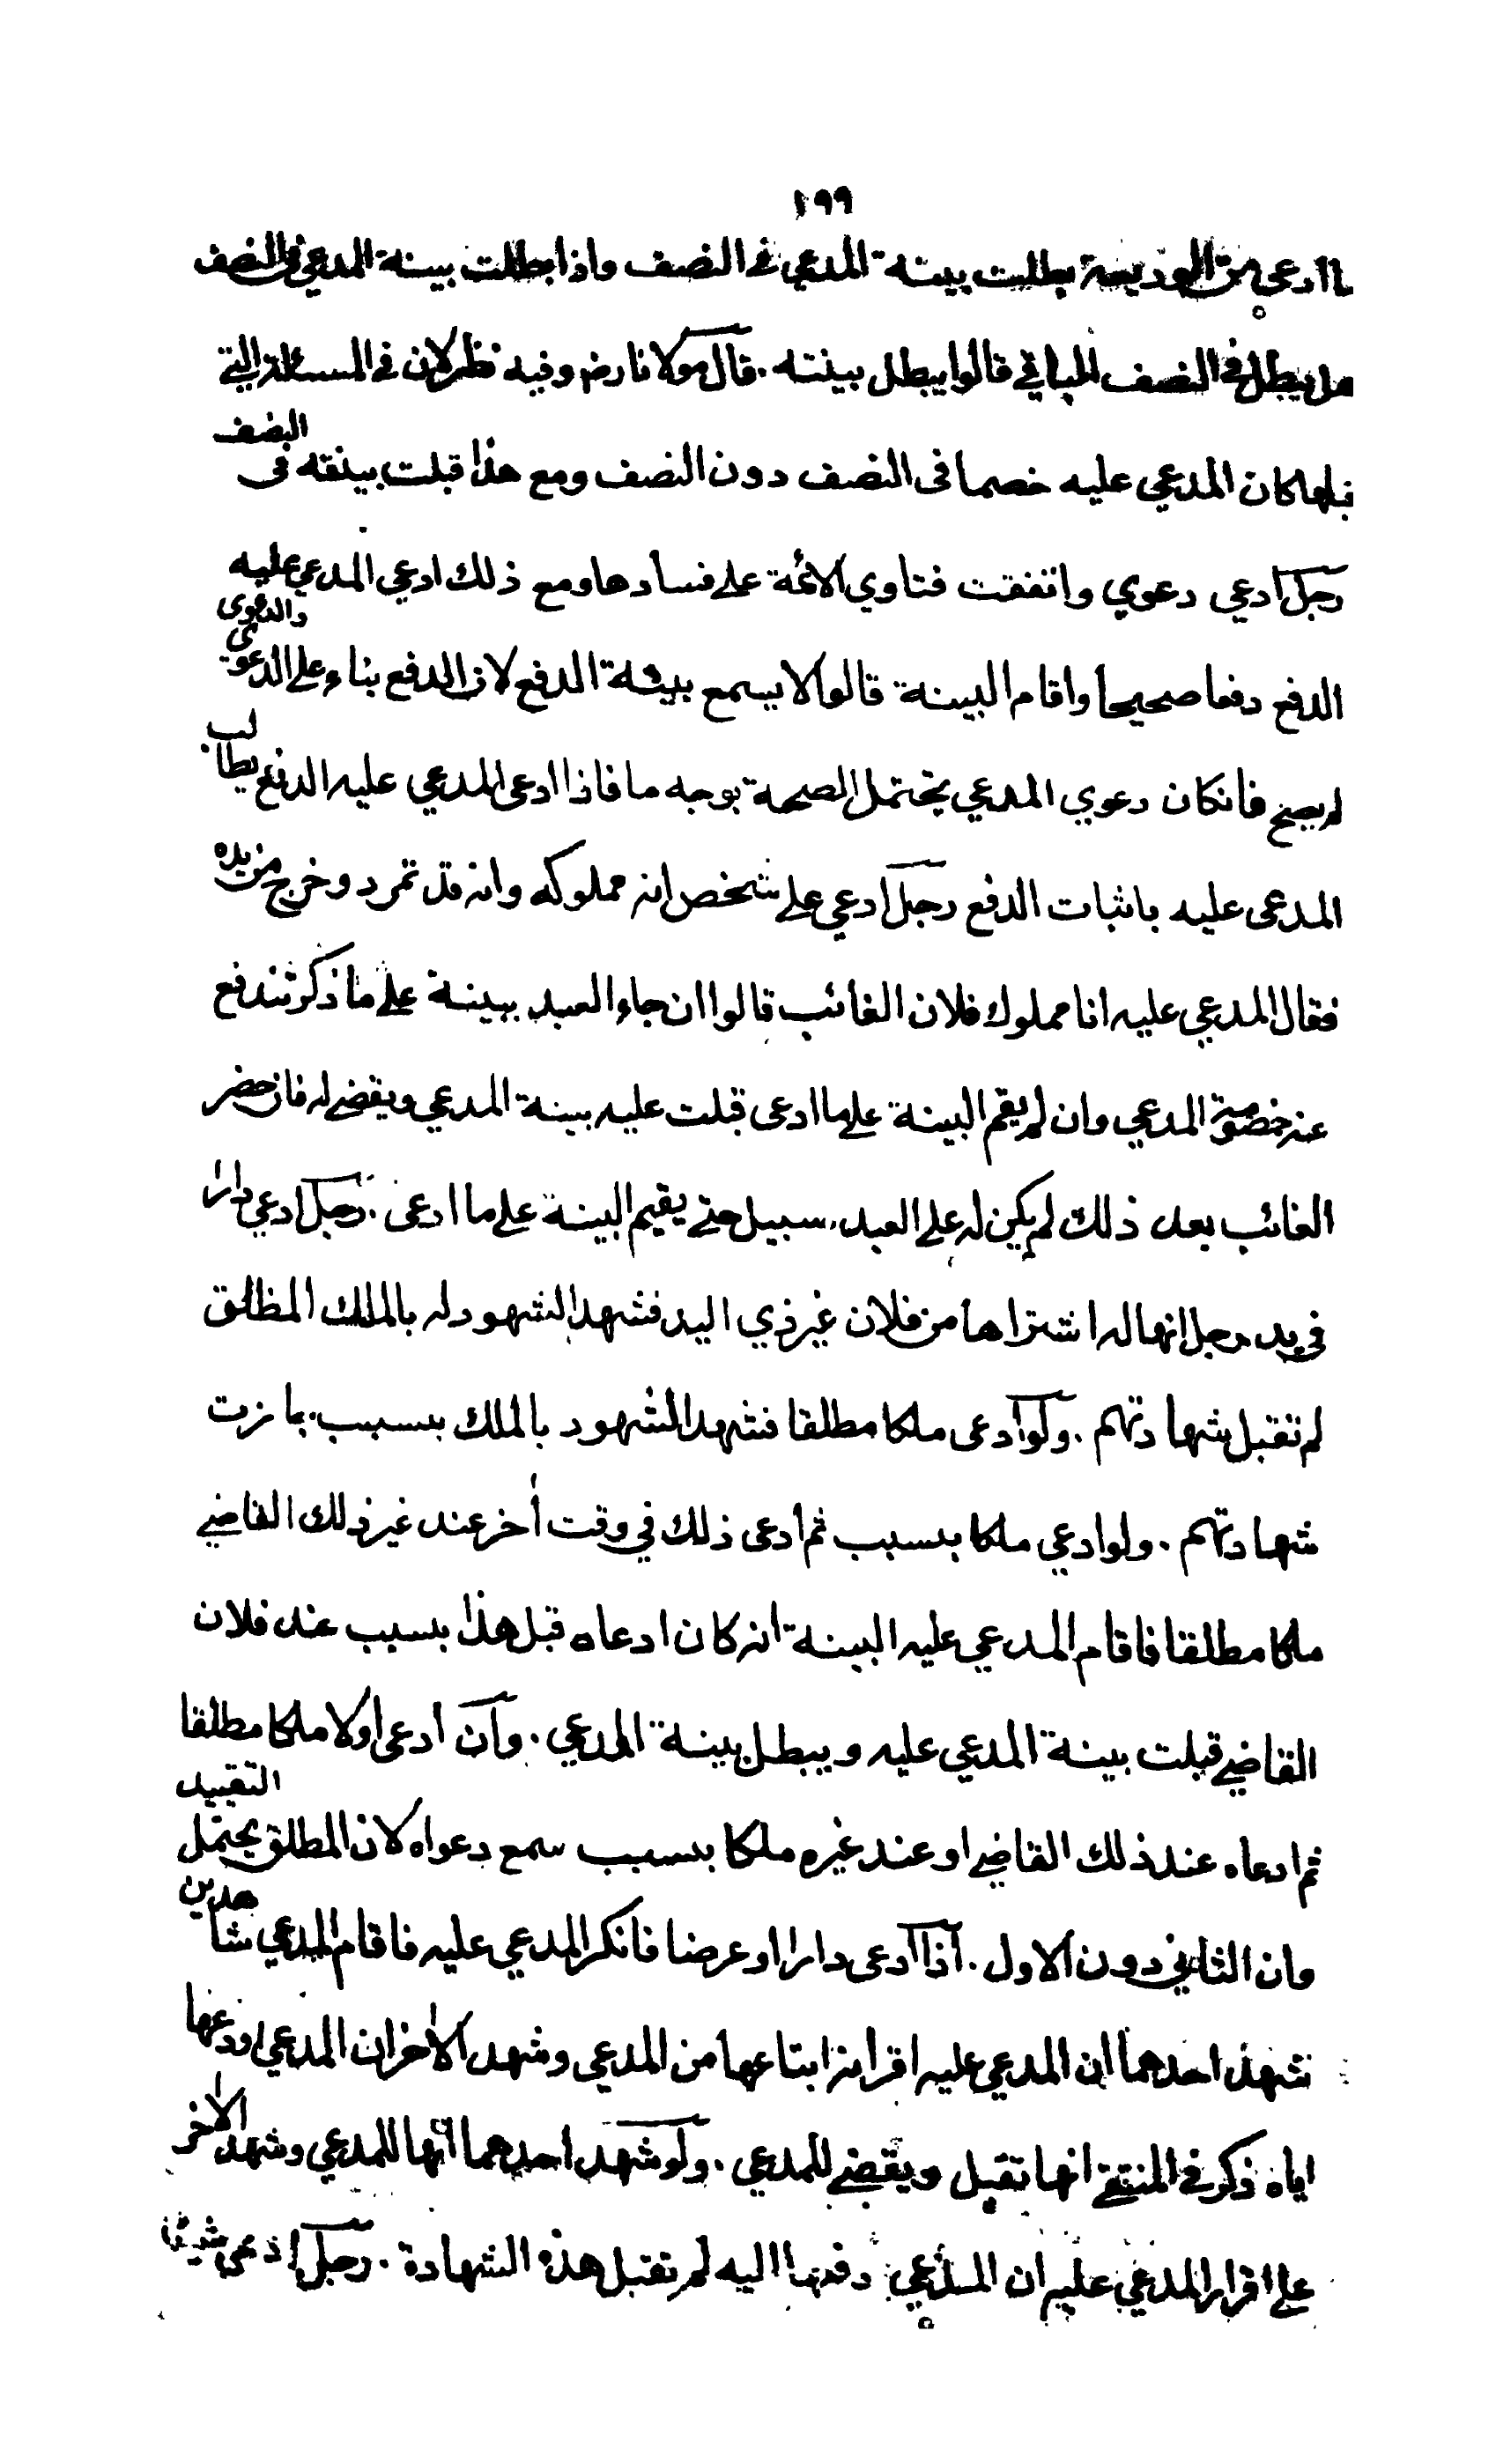 ١٩٩
ما ادعي من الوديعة بطلت بينة المدعي في النصف واذا بطلت بينة المدعي في النصف
هل يبطل في النصف الباقي قالوا يبطل بينته . قال مولانا رضـ وفيه نظر لان في المسئلة التي
قبلها كان المدعي عليه خصما في النصف دون النصف ومع هذا قبلت بينته في النصف
رجل ادعي دعوي واتفقت فتاوي الائمة علے فسادها ومع ذلك ادعي المدعي عليه
الدفع دفعا صحيحا واقام البينة قالوا لا يسمع بينة الدفع لان الدفع بناء علے الدعوي والدعوى
لم يصح فانكان دعوي المدعي يحتمل الصحة بوجه ما فاذا ادعى المدعي عليه الدفع يطالب
المدعى عليه باثبات الدفع رجل ادعي علے شخص انه مملوكه وانه قد تمرد وخرج من يده
فقال المدعي عليه انا مملوك فلان الغائب قالوا ان جاء العبد ببينة علے ما ذكر تندفع
عنه خصومة المدعي وان لم يقم البينة علے ما ادعى قبلت عليه بينة المدعي ويقضے له فان حضر
الغائب بعد ذلك لم يكن له علے العبد سبيل حتے يقيم البينة علے ما ادعى . رجل ادعي دارا
في يد رجل انها له اشتراها من فلان غير ذي اليد فشهد الشهود له بالملك المطلق
لم تقبل شهادتهم . ولو ادعى ملكا مطلقا فشهد الشهود بالملك بسبب جازت
شهادتهم . ولو ادعي ملكا بسبب ثم ادعى ذلك في وقت أخر عند غير ذلك القاضے
ملكا مطلقا فاقام المدعي عليه البينة انه كان ادعاه قبل هذا بسبب عند فلان
القاضے قبلت بينة المدعي عليه ويبطل بينة المدعي . وان ادعى اولا ملكا مطلقا
ثم ادعاه عند ذلك القاضے او عند غيره ملكا بسبب سمع دعواه لان المطلق يحتمل التقييد
وان الثاني دون الاول . اذا ادعى دارا او عرضا فانكر المدعي عليه فاقام المدعي شاهدين
شهد احدهما ان المدعي عليه اقر انه ابتاعها من المدعي وشهد الاخر ان المدعي اودعها
اياه ذكر في المنتقے انها تقبل ويقضے للمدعي . ولو شهد احدهما انها للمدعي وشهد الاخر
علے اقرار المدعي عليه ان المدعي دفعها اليه لم تقبل هذه الشهادة . رجل ادعى شيئا